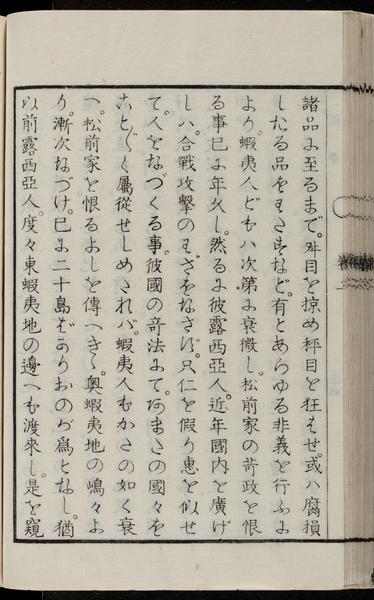 諸品に至るまで。舛目を掠め秤目を狂はせ。或ハ腐損
したる品をわたすなど。有とあらゆる非義を行ふに
より。蝦夷人どもハ次第に衰微し。松前家の苛政を恨
る事已に年久し。然るに彼露西亞人。近年國内を廣げ
しハ。合戰攻擊のわざをなさず。只仁を假り惠を似せ
て。人をなづくる事。彼國の奇法にて。あまたの國々を
こと〴〵く屬從せしめたれバ。蝦夷人もかさの如く衰
へ。松前家を恨るよしを傳へきゝ。奥蝦夷地の嶋々よ
り。漸次なづけ。已に二十島ばかりおのが爲となし。猶
以前露西亞人。度々東蝦夷地の邊へも渡來し。是を窺